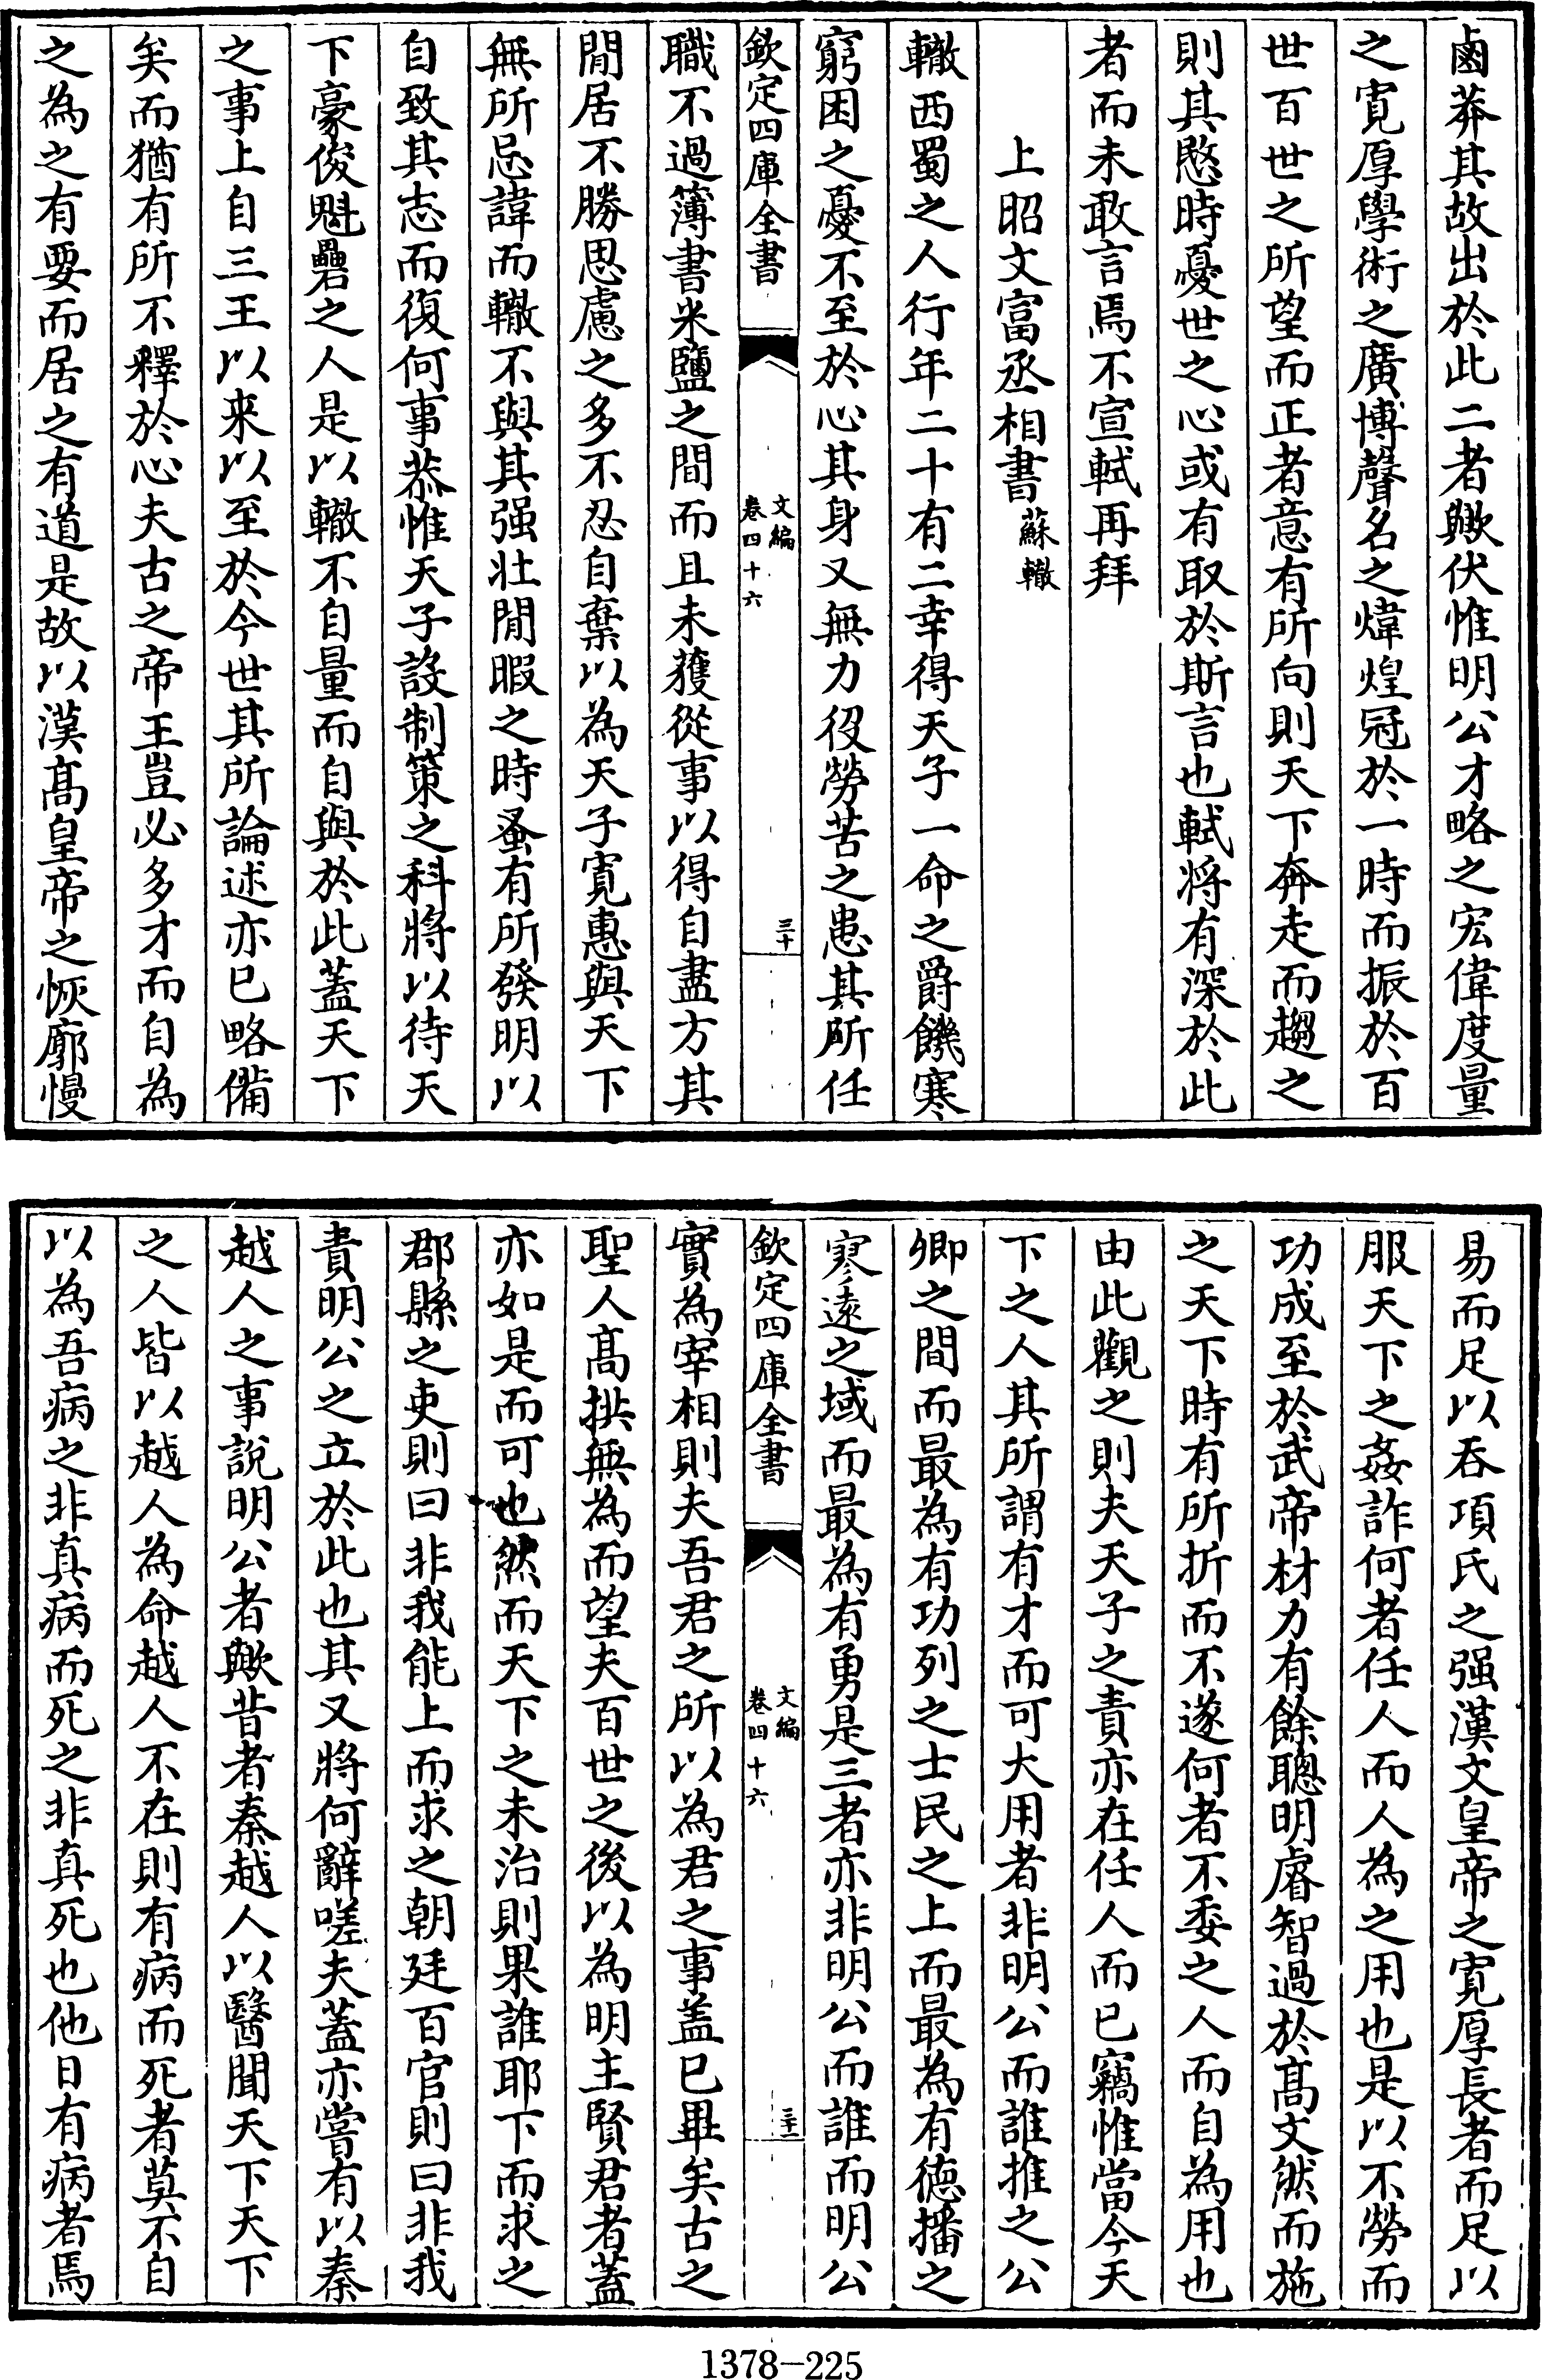 鹵莽其故出於此二者歟伏惟明公才略之宏偉度量
之寛厚學術之廣博聲名之煒煌冠於一時而振於百
世百世之所望而正者意有所向則天下奔走而趨之
則其愍時憂世之心或有取於斯言也軾將有深於此
者而未敢言焉不宣軾再拜
上昭文富丞相書蘇轍
轍西蜀之人行年二十有二幸得天子一命之爵饑寒
窮困之憂不至於心其身又無力役勞苦之患其所任
欽定四庫全書
文編
卷四十六
三十
職不過簿書米鹽之間而且未獲從事以得自盡方其
閒居不勝思慮之多不忍自棄以為天子寛惠與天下
無所忌諱而轍不與其强壯閒暇之時蚤有所發明以
自致其志而復何事恭惟天子設制策之科將以待天
下豪俊魁礨之人是以轍不自量而自與於此蓋天下
之事上自三王以来以至於今世其所論述亦已略備
矣而猶有所不釋於心夫古之帝王豈必多才而自為
之為之有要而居之有道是故以漢髙皇帝之恢廓慢
易而足以吞項氏之强漢文皇帝之寛厚長者而足以
服天下之姦詐何者任人而人為之用也是以不勞而
功成至於武帝材力有餘聰明睿智過於髙文然而施
之天下時有所折而不遂何者不委之人而自為用也
由此觀之則夫天子之責亦在任人而已竊惟當今天
下之人其所謂有才而可大用者非明公而誰推之公
卿之間而最為有功列之士民之上而最為有德播之
寒逺之域而最為有勇是三者亦非明公而誰而明公
欽定四庫全書
文編
卷四十六
三十一
實為宰相則夫吾君之所以為君之事盖已畢矣古之
聖人髙拱無為而望夫百世之後以為明主賢君者蓋
亦如是而可也然而天下之未治則果誰耶下而求之
郡縣之吏則曰非我能上而求之朝廷百官則曰非我
責明公之立於此也其又將何辭嗟夫蓋亦嘗有以秦
越人之事說明公者歟昔者秦越人以醫聞天下天下
之人皆以越人為命越人不在則有病而死者莫不自
以為吾病之非真病而死之非真死也他日有病者焉
1378-225